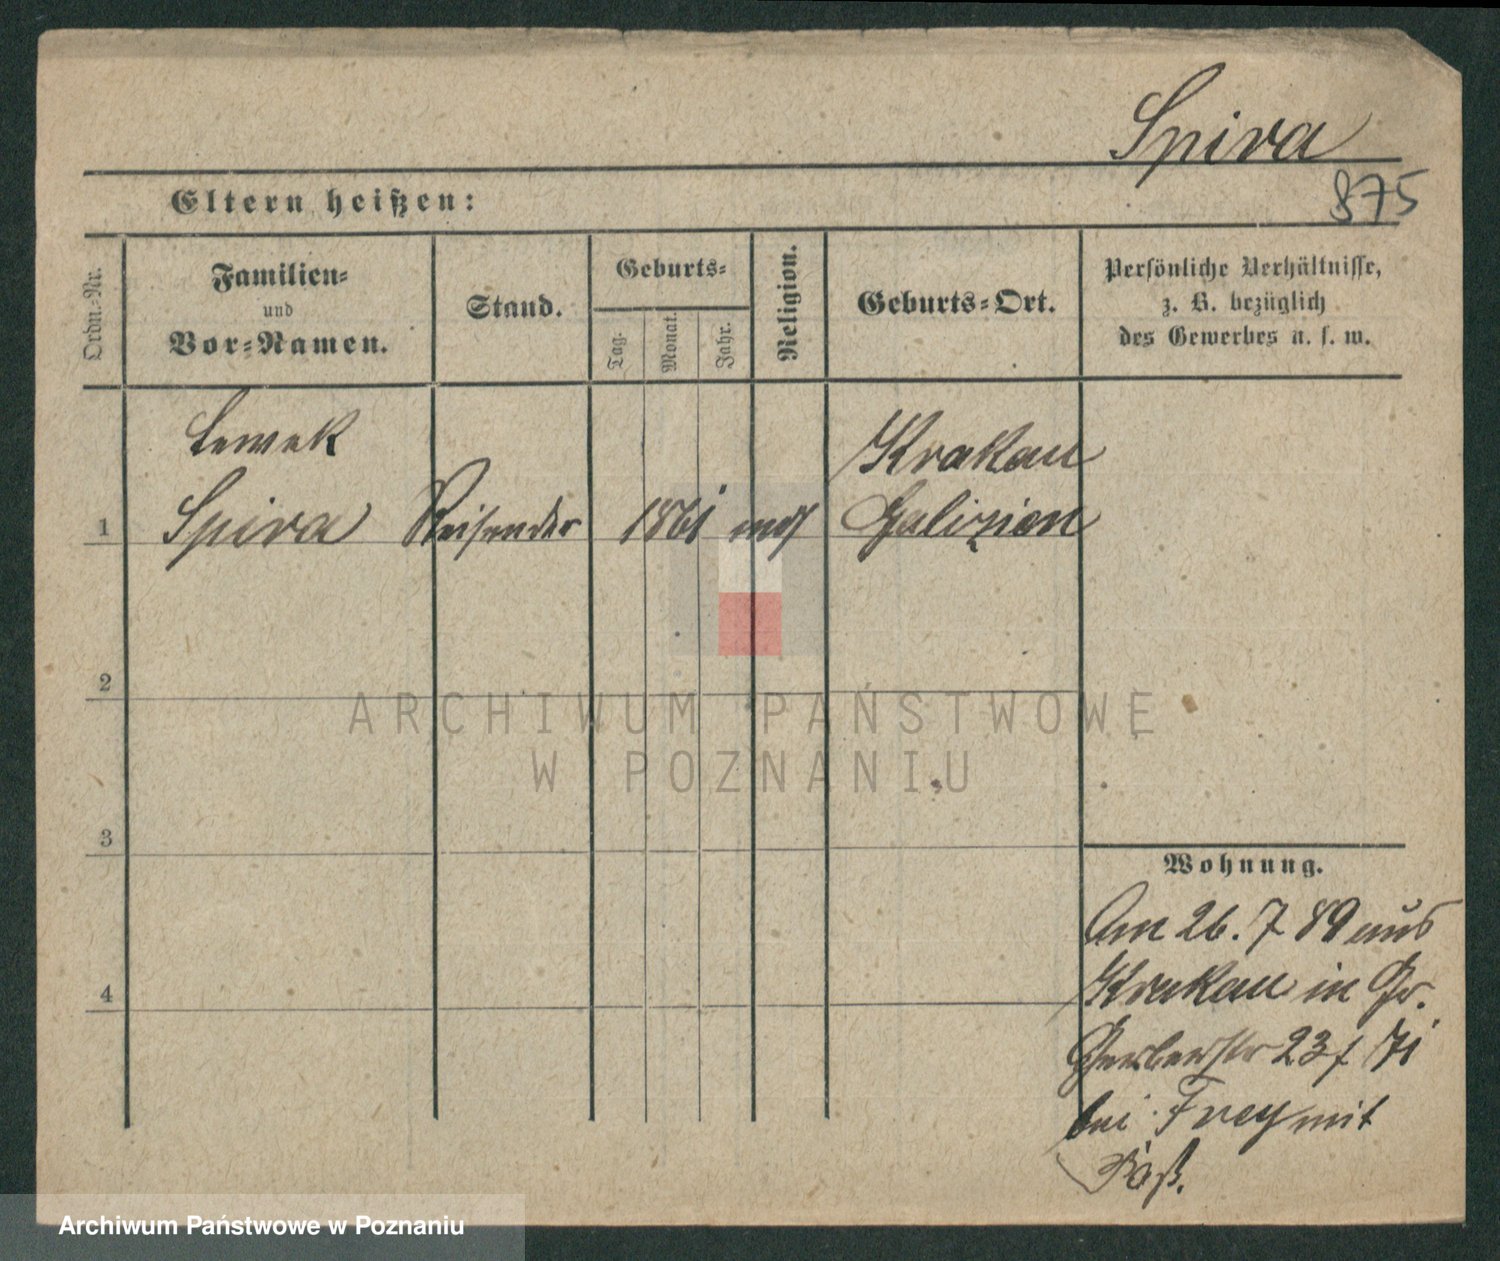 Spira
875
Eltern heißen:
Ordn.-Nr.
Familien-
und
Vor-Namen.
Stand.
Geburts-
Tag.
Monat.
Jahr.
Religion.
Geburts-Ort.
Persönliche Verhältnisse,
z. B. bezüglich
des Gewerbes u. s. w.
Lewek
Krakau
1 Spira Reisender 1861 mos Galizien
2
3
4
Wohnung.
Am 26. 7 89 aus
Krakau in Gr.
Gerberstr 23
bei Frey mit
Paß.
ARCHIWUM PAŃSTWOWE
W POZNANIU
Archiwum Państwowe w Poznaniu